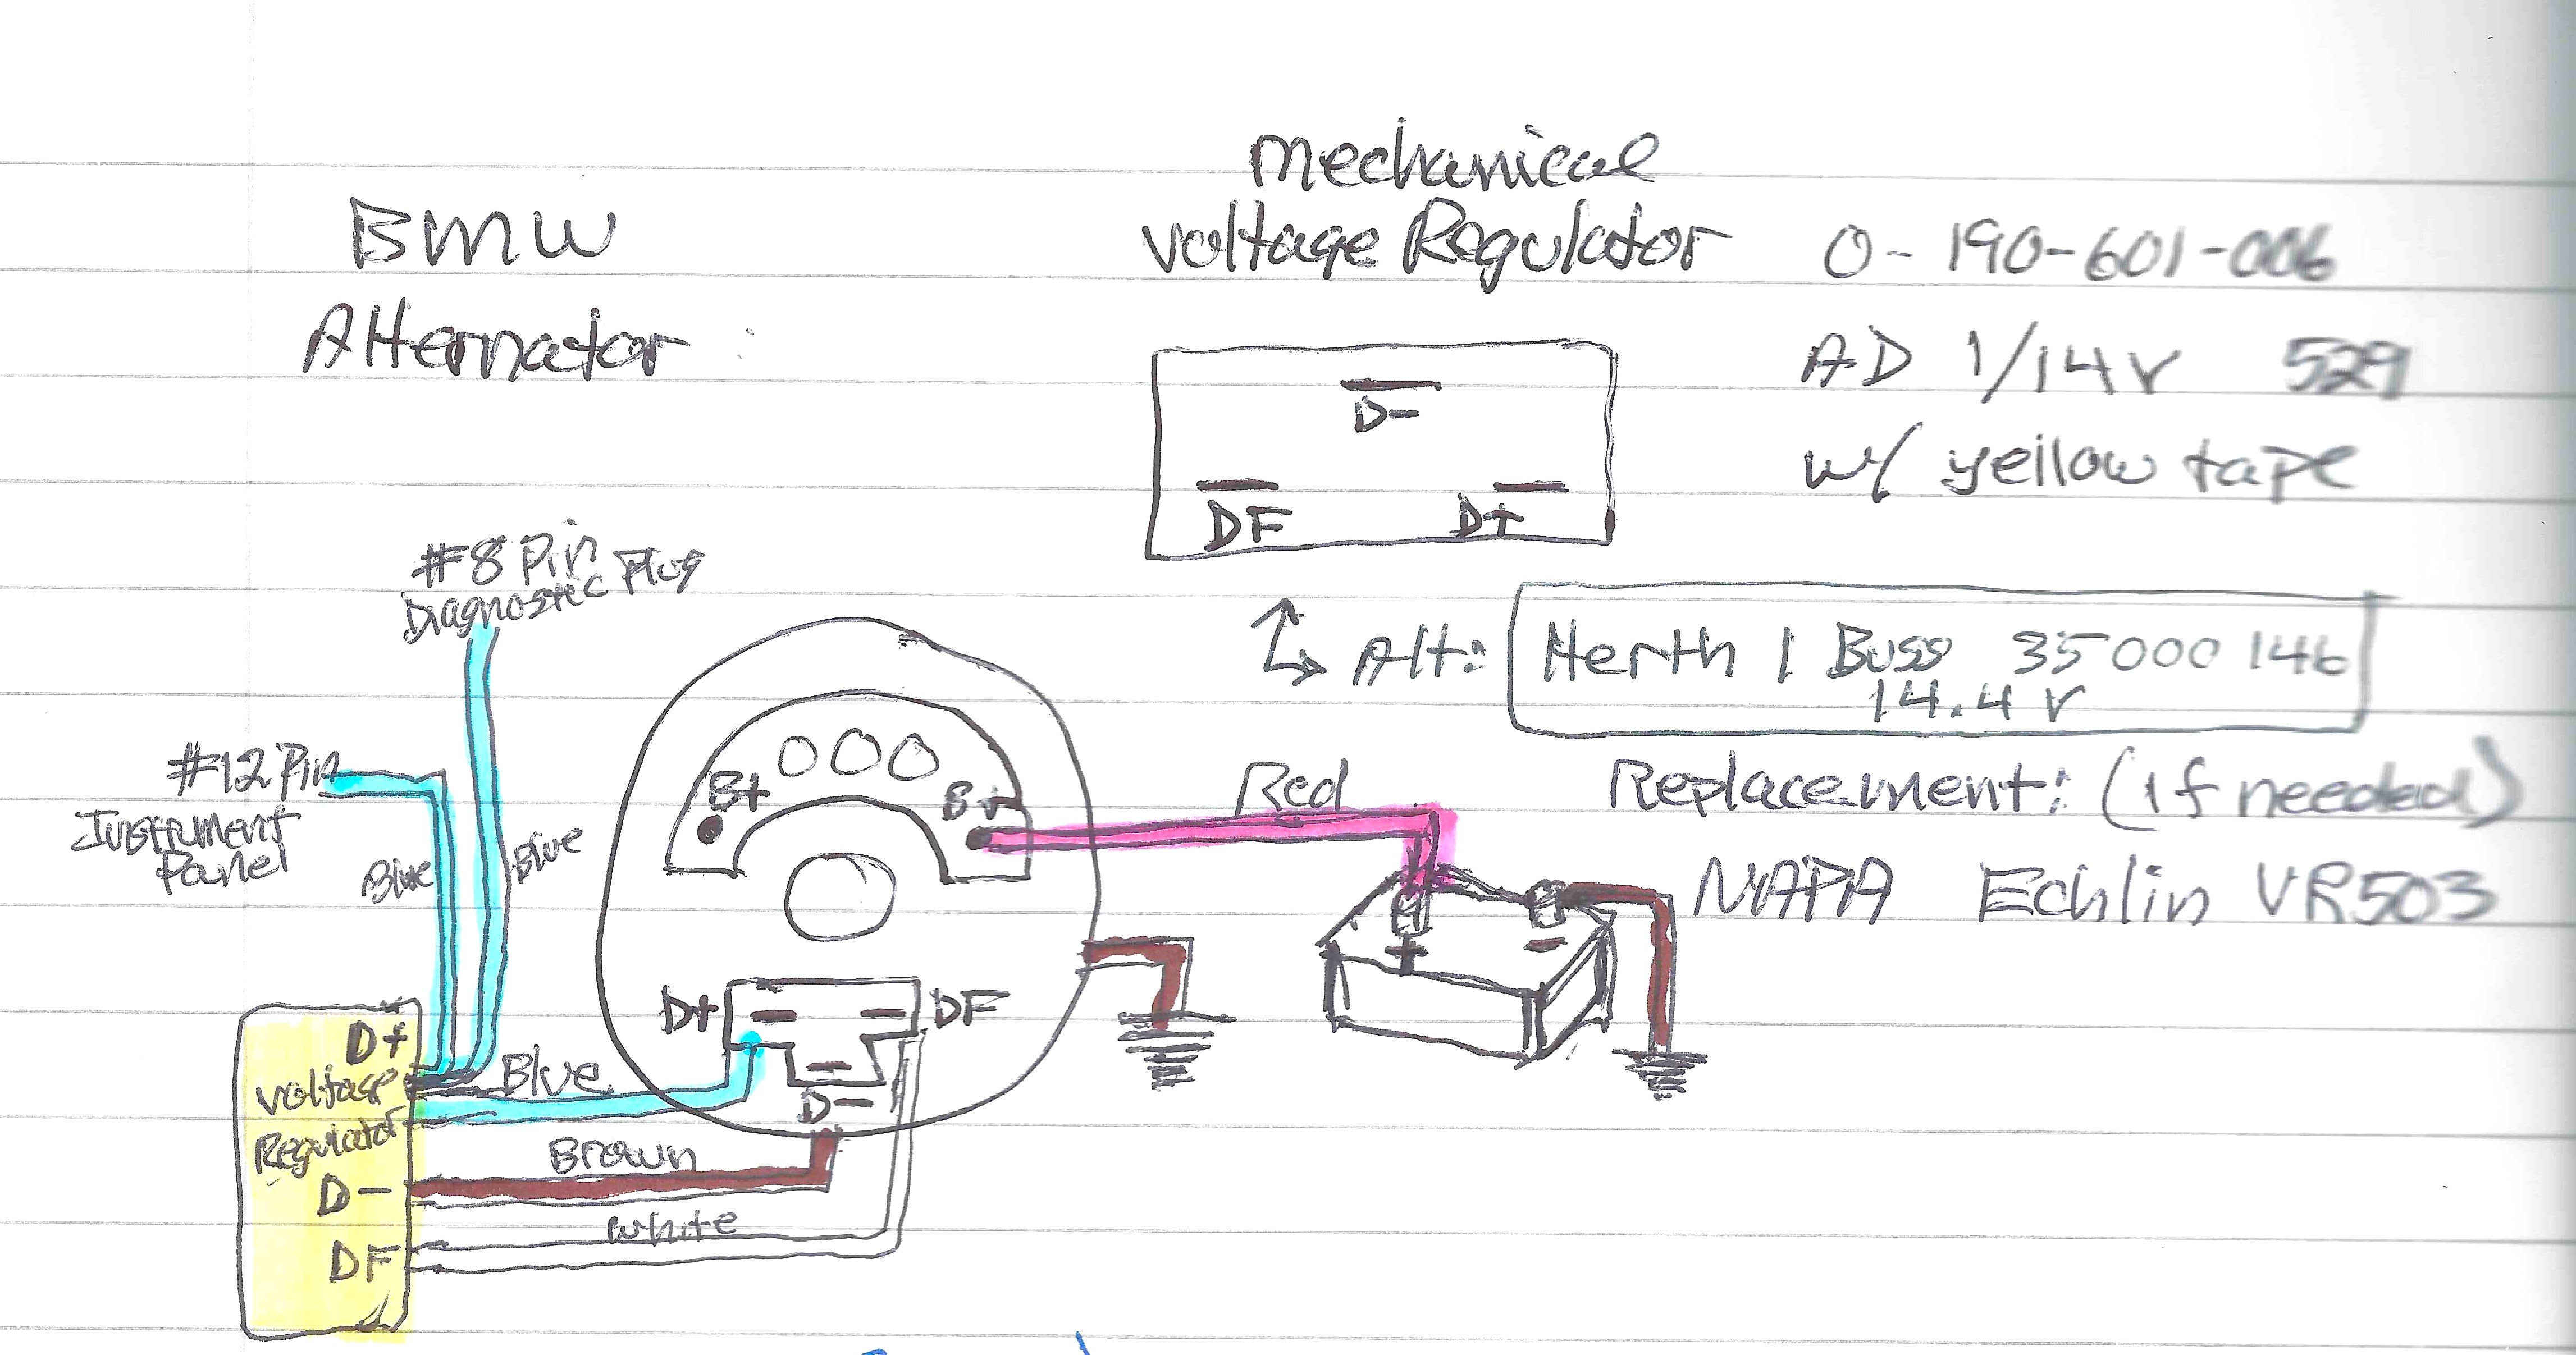 BMW
Alternator
mechanical
voltage Regulator
0-190-601-006
AD 1/14V 529
w/ yellow tape
D-
DF
D+
Alt: Herth 1 Buss 35000 146
14.4 V
Replacement: (if needed)
NAPA Echlin VR503
#8 Pin
Diagnostec Plug
#12 Pin
Instrument
Panel
Blue
Blue
B+
B+
Red
+
-
D+
DF
D-
D+
voltage
Regulator
D-
DF
Blue
Brown
white